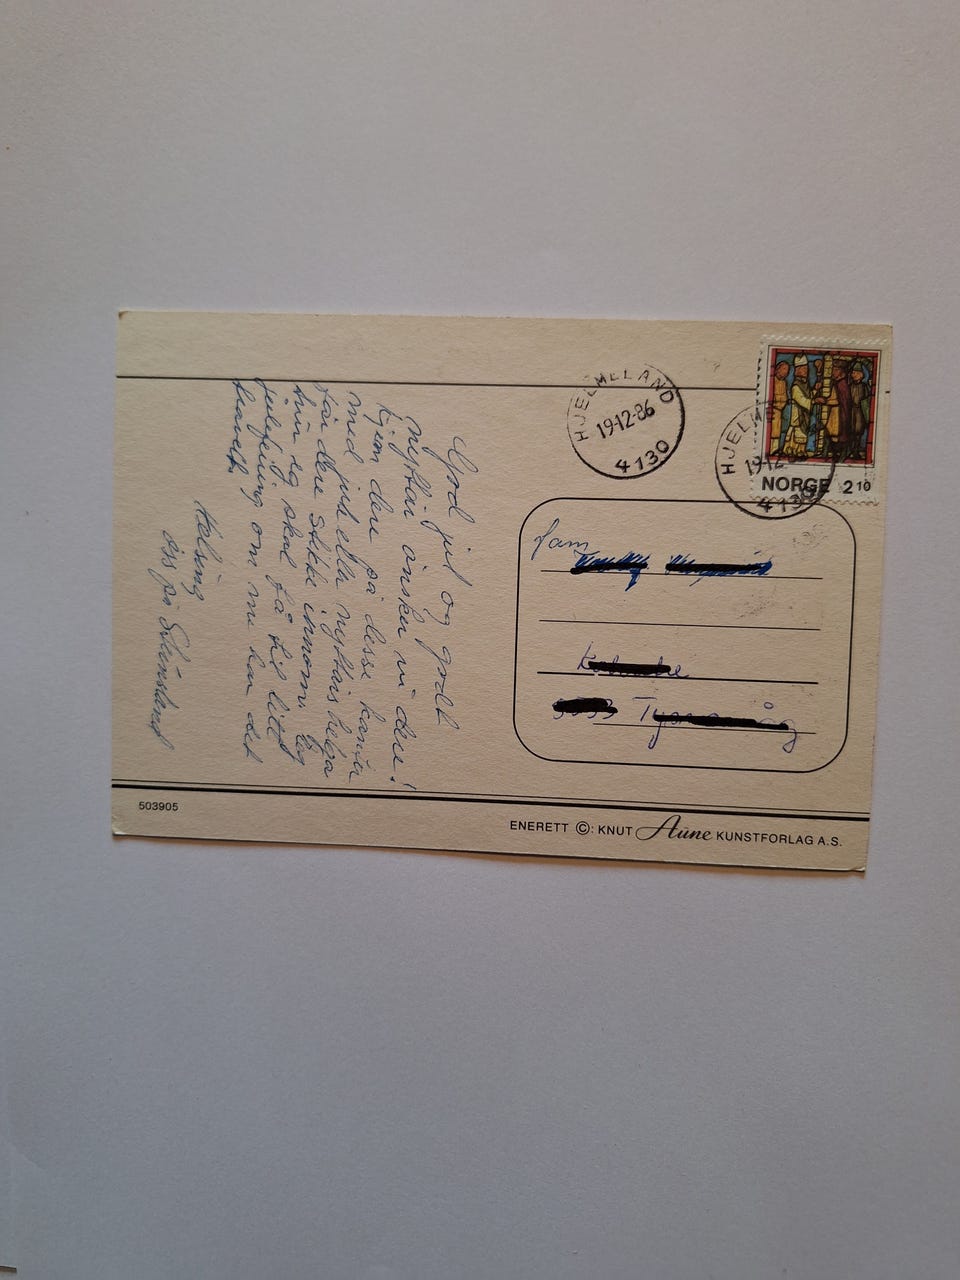 God jul og godt
nyttår ønsker vi dere!
Kjem dere på desse kanter
med jul eller nyttårs helga
får dere stikke innom. Eg
trur eg skal få til litt
julefeiring om me kan det
Helsing
oss på Steinsland
HJELMELAND
19-12-86
4130
HJELM
19-12
4130
NORGE 2 10
fam
503905
ENERETT ©: KNUT Aune KUNSTFORLAG A.S.